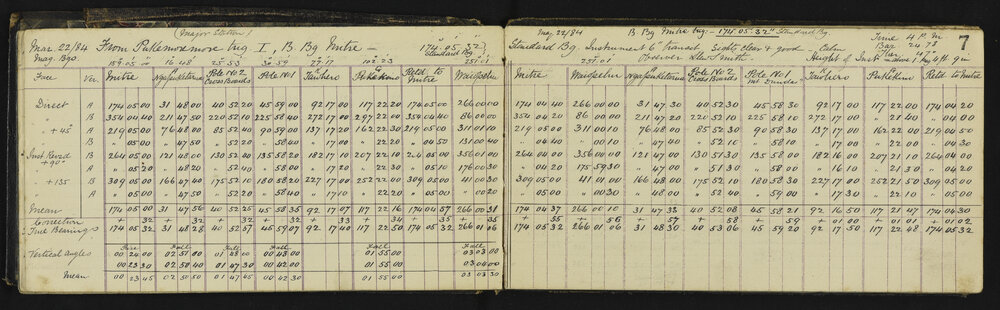 (Major Station)
Mar. 22/84 From Pukemoremore trig I, B Bg Mitre — 174° 05' 32" Standard Bg.
Mag. Brgs 159.05 16 48 25 53 30 59 77.17 102 23 251.01
Face Ver Mitre Ngaruawahia Pole No 2 Cross Boards Pole No 1 Pukekiu Retd to Mitre Maungakawa
Direct A 174 05 00 31 48 00 40 52 20 45 59 00 92 17 00 117 22 20 174 05 00 266 00 00
B 354 04 40 211 47 50 220 52 10 225 58 40 272 17 00 297 22 00 354 04 40 86 00 00
" +45° A 219 05 00 76 48 00 85 52 40 90 59 00 137 17 20 162 22 30 219 05 00 311 01 10
B " 05 00 " 47 50 " 52 20 " 58 40 " 17 00 " 22 20 " 04 50 131 00 40
Inst Revsd +90° B 264 05 00 121 48 00 130 52 40 135 58 20 182 17 10 207 22 10 264 05 00 356 01 00
A " 05 20 " 48 20 " 52 40 " 58 00 " 17 00 " 22 30 " 05 10 176 00 30
" +135 B 309 05 00 166 47 40 175 52 10 180 58 20 227 17 00 252 22 00 309 05 00 41 00 30
A " 05 00 " 47 50 " 52 20 " 58 40 " 17 10 " 22 20 " 05 00 " 00 20
Mean 174 05 00 31 47 56 40 52 25 45 58 35 92 17 07 117 22 16 174 04 57 266 00 31
Correction + 32 + 32 + 32 + 33 + 33 + 34 + 35 + 35
True Bearings 174 05 32 31 48 28 40 52 57 45 59 07 92 17 40 117 22 50 174 05 32 266 01 06
Vertical Angles Rise Fall Fall Fall Fall Fall
00 24 00 02 51 00 01 48 00 00 43 00 01 55 00 03 03 00
00 23 30 02 50 40 01 47 30 00 42 00 01 55 00 03 04 00
Mean 00 23 45 02 50 50 01 47 45 00 42 30 01 55 00 03 03 30
Mar, 22/84 B Bg Mitre trig — 174° 05' 32" Standard Bg.
Time 4 P.M
7
Standard Bg. Instrument 6" transit Sights clear & good — Calm
Bar 24 73
Ther 47°
251.01 Observer Smith
Height of Inst above
Mitre Maungakawa Ngaruawahia Pole No 2 Cross Boards Pole No 1 Pukekiu Retd to Mitre
174 04 40 266 00 00 31 47 30 40 52 30 45 58 30 92 17 00 117 22 00 174 04 20
354 04 20 86 00 00 211 47 20 220 52 10 225 58 10 272 17 00 " 21 40 " 04 00
219 05 00 311 00 10 76 48 00 85 52 30 90 58 30 137 17 00 162 22 00 219 04 50
" 04 40 " 00 10 " 47 40 " 52 10 " 58 10 " 17 00 " 22 00 " 04 30
264 04 00 356 00 00 121 47 00 130 51 30 135 58 00 182 16 00 207 21 10 264 04 00
" 04 20 175 59 30 " 47 00 " 51 30 " 58 00 " 16 00 " 21 30 " 04 00
309 05 00 41 00 00 166 48 00 175 52 10 180 58 30 227 17 00 252 21 50 309 05 00
" 05 00 " 00 30 " 48 00 " 52 40 " 59 00 " 17 30 " 22 10 " 05 00
174 04 37 266 00 10 31 47 33 40 52 08 45 58 21 92 16 50 117 21 47 174 04 30
+ 55 + 56 + 57 + 58 + 59 + 01 00 + 01 01 + 01 02
174 05 32 266 01 06 31 48 30 40 53 06 45 59 20 92 17 50 117 22 48 174 05 32